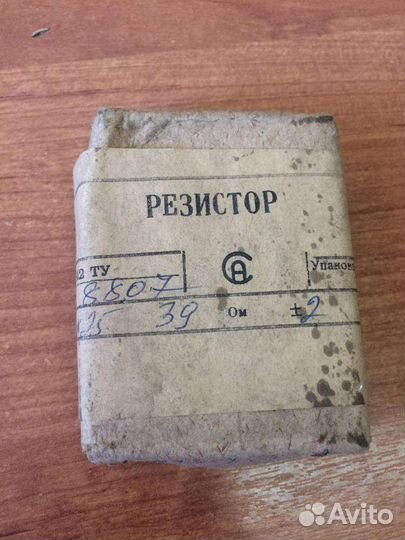 РЕЗИСТОР
2 ТУ
Упаков
8807
25 39 Ом ±2
Avito